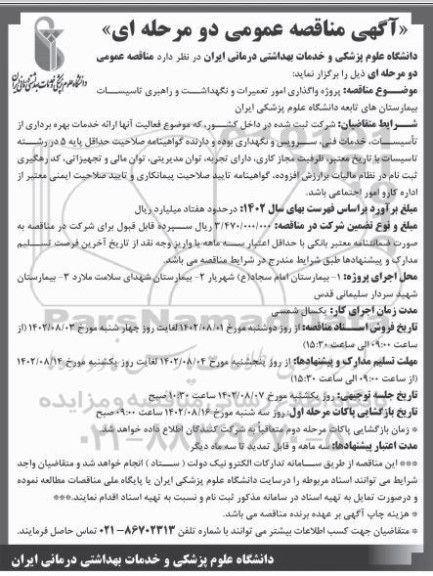 «آگهی مناقصه عمومی دو مرحله ای»
دانشگاه علوم پزشکی و خدمات بهداشتی درمانی ایران در نظر دارد مناقصه عمومی
دو مرحله ای ذیل را برگزار نماید:
موضوع مناقصه: پروژه واگذاری امور تعمیرات و نگهداشت و راهبری تاسیسات
بیمارستان های تابعه دانشگاه علوم پزشکی ایران
شرایط متقاضیان: شرکت ثبت شده در داخل کشور، که موضوع فعالیت آنها ارائه خدمات بهره برداری از
تأسیسات، خدمات فنی، سرویس و نگهداری بوده و دارنده گواهینامه صلاحیت حداقل پایه ۵ در رشته
تاسیسات با تاریخ معتبر، ظرفیت مجاز کاری، دارای تجربه، توان مدیریتی، توان مالی و تجهیزاتی، کد رهگیری
ثبت نام در نظام مالیات برارزش افزوده، گواهینامه تایید صلاحیت پیمانکاری و تایید صلاحیت ایمنی معتبر از
اداره کار و امور اجتماعی باشد.
مبلغ برآورد براساس فهرست بهای سال ۱۴۰۲: درحدود هفتاد میلیارد ریال
مبلغ و نوع تضمین شرکت در مناقصه: ۳/۴۷۰/۰۰۰/۰۰۰ ریال سپرده قابل قبول برای شرکت در مناقصه به
صورت ضمانتنامه معتبر بانکی با حداقل اعتبار سه ماهه یا واریز وجه نقد از تاریخ آخرین فرصت تسلیم
مدارک و پیشنهادها طبق شرایط مندرج در شرایط مناقصه می باشد.
محل اجرای پروژه: ۱- بیمارستان امام سجاد(ع) شهریار ۲- بیمارستان شهدای سلامت ملارد ۳- بیمارستان
شهید سردار سلیمانی قدس
مدت زمان اجرای کار: یکسال شمسی
تاریخ فروش اسناد مناقصه: از روز دوشنبه مورخ ۱۴۰۲/۰۸/۰۱ لغایت روز چهار شنبه مورخ ۱۴۰۲/۰۸/۰۳ (از
ساعت ۰۹:۰۰ الی ساعت ۱۵:۳۰)
مهلت تسلیم مدارک و پیشنهادها: از روز پنجشنبه مورخ ۱۴۰۲/۰۸/۰۴ لغایت روز یکشنبه مورخ ۱۴۰۲/۰۸/۱۴
(از ساعت ۰۹:۰۰ الی ساعت ۱۵:۳۰)
تاریخ جلسه توجیهی: روز یکشنبه مورخ ۱۴۰۲/۰۸/۰۷ ساعت ۱۰:۳۰ صبح
تاریخ بازگشایی پاکات مرحله اول: روز سه شنبه مورخ ۱۴۰۲/۰۸/۱۶ ساعت ۰۹:۰۰ صبح
* زمان بازگشایی پاکات مرحله دوم متعاقباً به شرکت کنندگان اطلاع داده خواهد شد.
مدت اعتبار پیشنهادها: سه ماهه و قابل تمدید تا سه ماه دیگر
*** این مناقصه از طریق سامانه تدارکات الکترونیک دولت ( ستاد ) انجام خواهد شد و متقاضیان واجد
شرایط می توانند اسناد مربوطه را درسایت دانشگاه علوم پزشکی ایران یا پایگاه ملی مناقصات مطالعه نموده
و درصورت تمایل به تهیه اسناد در سامانه مذکور ثبت نام و نسبت به تهیه اسناد اقدام نمایند.***
* هزینه چاپ آگهی بر عهده برنده مناقصه می باشد.
* متقاضیان جهت کسب اطلاعات بیشتر می توانند با شماره تلفن ۸۶۷۰۲۳۱۳-۰۲۱ تماس حاصل فرمایند.
دانشگاه علوم پزشکی و خدمات بهداشتی درمانی ایران